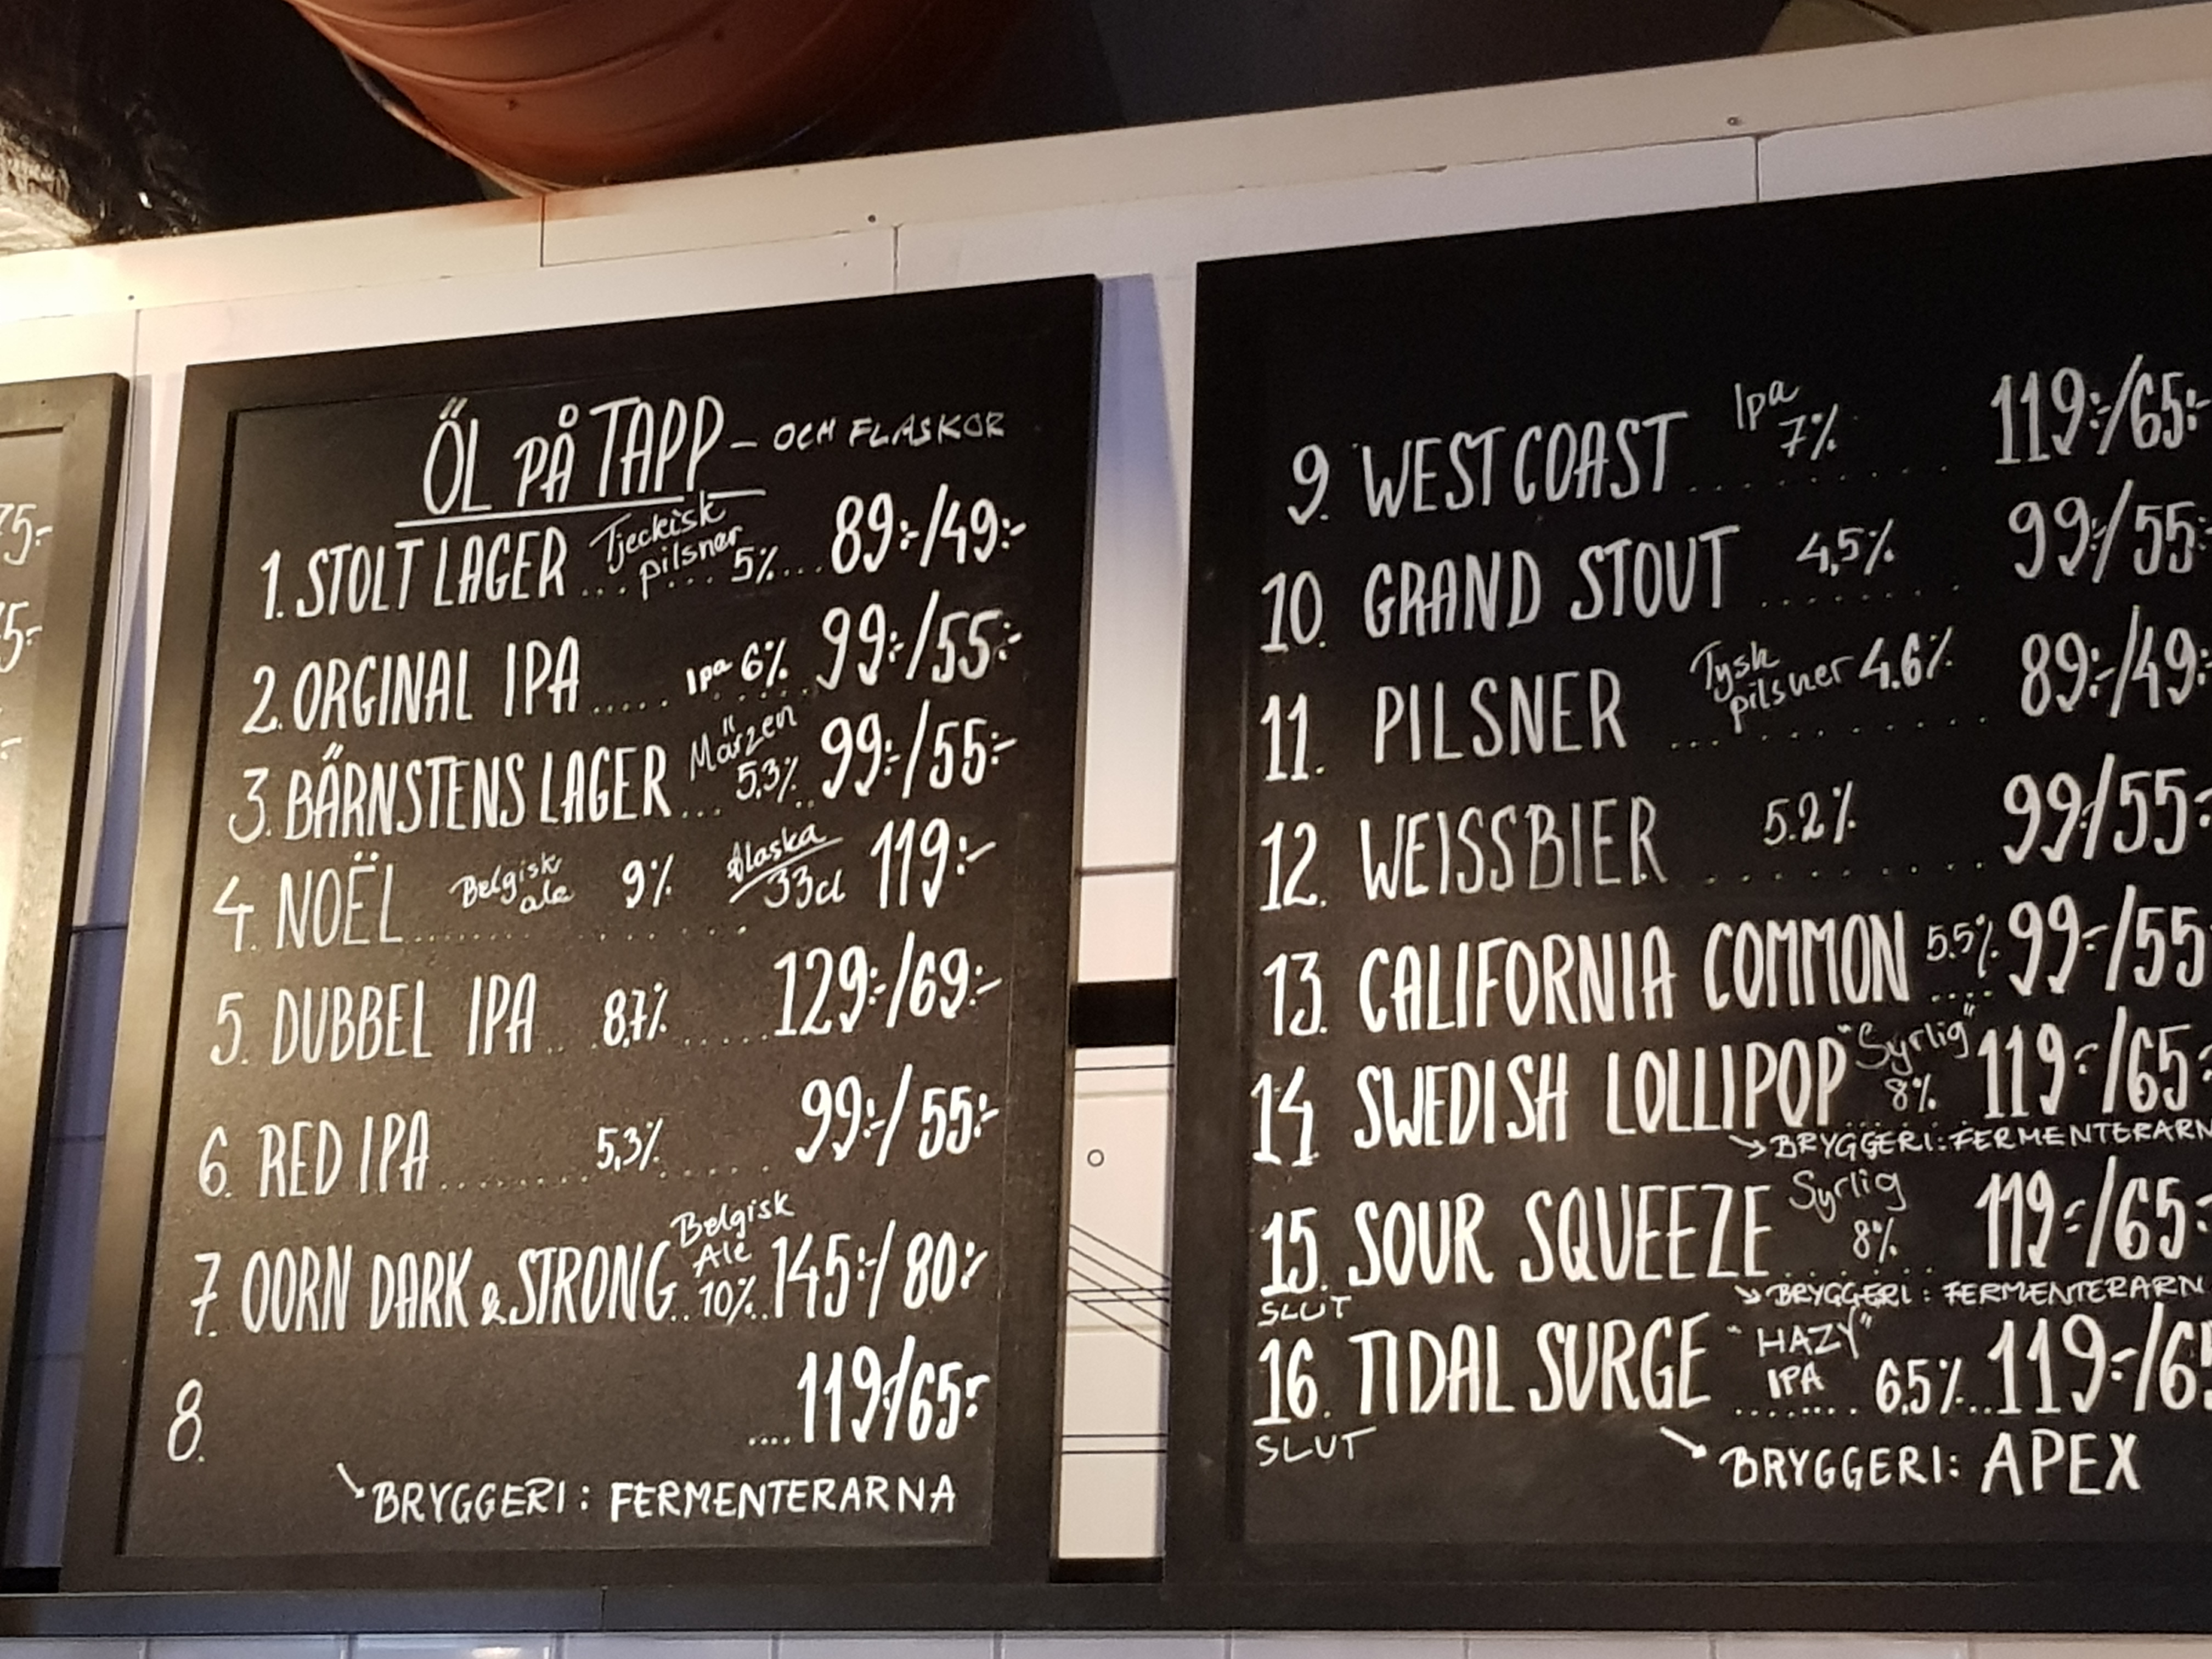 75:-
5:-
ÖL PÅ TAPP - OCH FLASKOR
1. STOLT LAGER ... Tjeckisk pilsner ... 5% ... 89:-/49:-
2. ORGINAL IPA ..... Ipa 6% 99:-/55:-
3. BÄRNSTENS LAGER ... Märzen 5,3% .. 99:-/55:-
4. NOËL Belgisk ale 9% Alaska 33cl 119:-
5. DUBBEL IPA .. 8,7% ..... 129:-/69:-
6. RED IPA ........ 5,3% ..... 99:-/55:-
7. OORN DARK & STRONG .. Belgisk Ale 10% .. 145:-/80:-
8. .... 119:-/65:-
BRYGGERI: FERMENTERARNA
9. WEST COAST Ipa 7% ........ 119:-/65:-
10. GRAND STOUT 4,5% ........ 99:-/55:-
11. PILSNER Tysk pilsner 4.6% ......... 89:-/49:-
12. WEISSBIER 5.2% ......... 99:-/55:-
13. CALIFORNIA COMMON 5.5% .... 99:-/55
14. SWEDISH LOLLIPOP "Syrlig" 8% 119:-/65:-
BRYGGERI: FERMENTERARN
15. SOUR SQUEEZE Syrlig 8% ...... 119:-/65:-
SLUT
BRYGGERI: FERMENTERARN
16. TIDAL SURGE "HAZY" IPA ........ 6.5% .. 119:-/65
SLUT
BRYGGERI: APEX